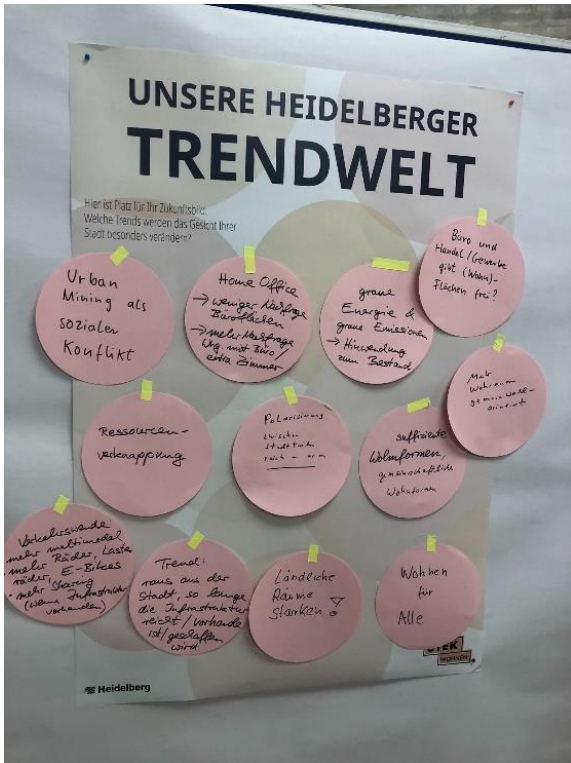 UNSERE HEIDELBERGER
TRENDWELT
Hier ist Platz für Ihr Zukunftsbild:
Welche Trends werden das Gesicht Ihrer
Stadt besonders verändern?
Urban
Mining als
sozialer
Konflikt
Home Office
→ weniger Nachfrage
Büroflächen
→ mehr Nachfrage
Whg. mit Büro/
extra Zimmer
graue
Energie &
graue Emissionen
→ Hinwendung
zum Bestand
Büro und
Handel/Gewerbe
gibt (Wohn)-
Flächen frei?
Ressourcen-
verknappung
Polarisierung
zwischen
Stadtteilen
reich - arm
suffiziente
Wohnformen,
gemeinschaftliche
Wohnformen
Mehr
Wohnraum
gemeinwohl-
orientiert
Verkehrswende:
mehr multimodal
• mehr Räder, Lasten
räder, E-Bikes
• mehr Sharing
(wenn Infrastruktur
vorhanden)
Trend:
raus aus der
Stadt, so lange
die Infrastruktur
reicht/vorhanden
ist/geschaffen
wird
Ländliche
Räume
stärken!
Wohnen
für
Alle
WOHNEN
Heidelberg